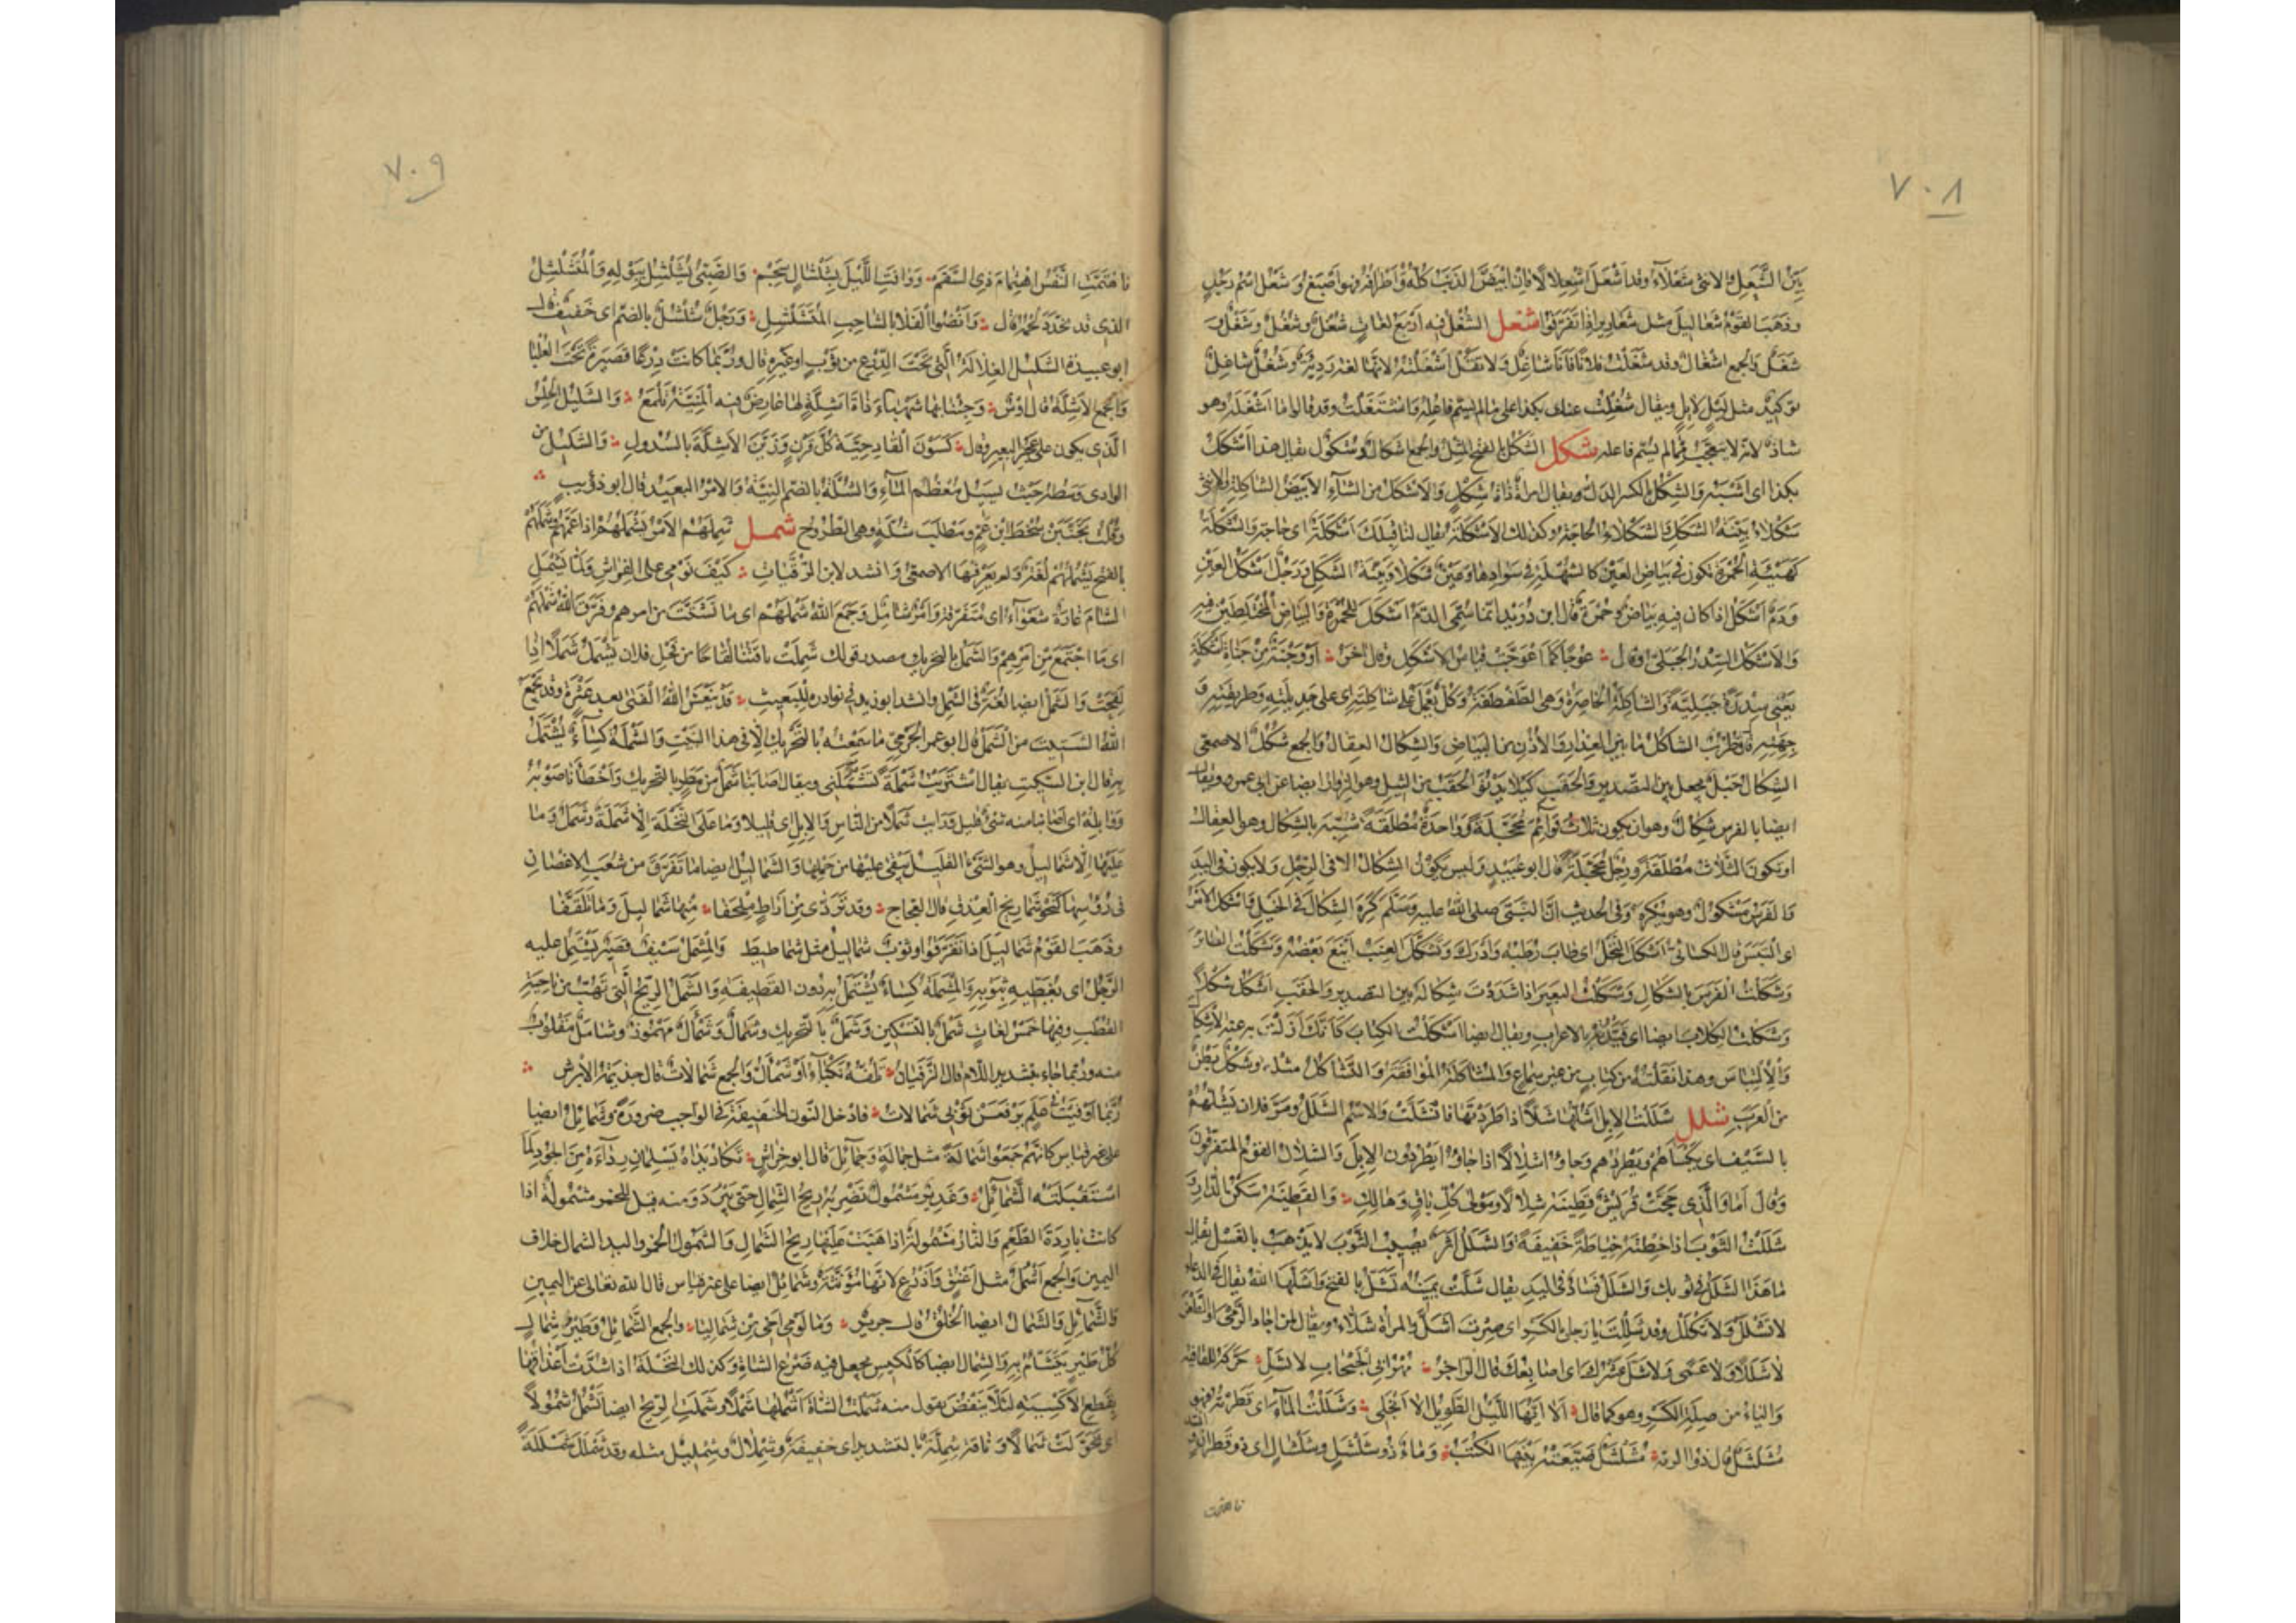 ٧٠٨
بَيِّنُ الشَّعَلِ والانثى شَعْلَاءُ وقد اَشْعَلَ اشْعِلالًا فاِن ابْيَضَّ الذَنَبُ كُلُّهُ وَاَطْرَافُهُ فهو اَصْبَغُ وَشَعْلُ اسْمُ رَجُلٍ
وذَهَبَ القَوْمُ شَعَالِيلَ مثل شَعَارِيرَ اِذَا تَفَرَّقُوا شغل الشُغْلُ فيه اَرْبَعُ لغَاتٍ شُغْلٌ وشُغُلٌ وشَغْلٌ وَ
شَغَلٌ وَالجمع اشْغَالٌ وقد شَغَلْتُ فلانًا فَاَنَا شَاغِلٌ وَلا تَقُلْ اَشْغَلْتُهُ لانّهَا لغة رَدِيّةٌ وشُغْلٌ شاغِلٌ
توكيدٌ مثل لَيْلٍ لايِلٍ ويقال شُغِلْتُ عنك بكذا على مالم يُسَمّ فاعِلُه وَاشْتَغَلْتُ وقد قالوا ما اَشْغَلَهُ وهو
شاذ لانه لا يتعجب مما لم يسم فاعله شكل الشَكْلُ بالفتح المِثل والجمع اشكال وشكول يقال هذا اَشْكَلُ
بكذا اى اَشْبَهُ والشِكْلُ بالكسر الدَلُّ ويقال امرأةٌ ذَاتُ شِكْلٍ وَالاَشْكَلُ من الشآءِ الاَبْيَضُ الشاكِلَةِ والانثى
شَكْلاءُ بَيِّنَةُ الشَكَلِ والشَكْلَاءُ الحاجَةُ وكذلك الاَشْكَلَةُ يُقال لنا قِبَلَكَ اَشْكَلَةٌ اى حاجة والشُكْلَةُ
كهَيْئَةِ الحُمْرَةِ تكون فى بَيَاضِ العَيْنِ كالشُهْلَةِ فى سَوَادِهَا وعَيْنٌ شَكْلاءُ بَيِّنَةُ الشَكَلِ وَرَجُلٌ اَشْكَلُ العَيْنِ
وَدَمٌ اَشْكَلُ اذا كان فيهِ بَيَاضٌ وحُمْرَةٌ قال ابن دُرَيْدٍ اِنّما سُمِّىَ الدَّمُ اَشْكَلَ للحُمْرَةِ وَالبَيَاضِ المُخْتَلِطَيْنِ فيهِ
وَالاَشْكَلُ السِّدْرُ الجَبَلِىُّ وقال عُوجًا كَمَا اعْوَجَّتْ قِيَاسُ الاَشْكَلِ وقال اخر اَوْ وَجْبَةٌ مِنْ جَنَاةِ اَشْكَلَةٍ
يَعْنِى سِدْرَةً جَبَلِيَّةً وَالشاكِلَةُ الخاصِرَةُ وَهى الطَفْطَفَةُ وَكُلٌّ يَعْمَلُ على شاكِلَتِهِ اى على جَدِيلَتِهِ وَطَرِيقَتِهِ وَ
جِهَتِهِ قال قُطْرُبٌ الشاكِلُ مَا بَيْنَ العِذَارِ وَالاُذُنِ من البَيَاضِ وَالشِكَالُ العِقَالُ وَالجمع شُكُلٌ الاصمعى
الشِكَالُ حَبْلٌ يُجْعَلُ بين التصدير والحَقَبِ كَيْلا يَدْنُوَ الحَقَبُ من الثِيلِ وهو الزِوَارُ ايضا عن ابى عمرو ويقال
ايضا بالفرس شِكَالٌ وهو ان يكون ثَلاثُ قَوَآئِمَ مُحَجَّلَةً وَوَاحِدَةٌ مُطْلَقَةً شُبِّهَ بالشِكَالِ وهو العِقَالُ
او تكون الثَلاثُ مُطْلَقَةً ورِجْلٌ مُحَجَّلَةً قال ابو عُبَيْدٍ وَليس يكون الشِكَالُ الا فى الرِجْلِ وَلا يكون فى اليَدِ
وَالفَرَسُ مَشْكُولٌ وهو يُكْرَه وَفى الحديث اَنَّ النَّبىّ صلى الله عليه وَسَلَّم كَرِهَ الشِكَالَ فى الخَيْلِ وَاَشْكَلَ الاَمْرُ
اى الْتَبَسَ قال الكسائىّ اَشْكَلَ النَخْلُ اى طَابَ رُطَبُه وَاَدْرَكَ وَتَشَكَّلَ العِنَبُ اَيْنَعَ بَعْضُهُ وَشَكَلْتُ الطائِرَ
وَشَكَلْتُ الفَرَسَ بالشِكَالِ وَشَكَلْتُ البَعيرَ اذا شَدَدْتَ شِكَالَهُ بين التصدير والحَقَبِ اَشْكُلُ شَكْلًا
وَشَكَلْتُ الكِتَابَ ايضا اى قَيَّدْتُهُ بالاعراب ويقال ايضا اَشْكَلْتُ الكِتابَ كَاَنَّكَ اَزَلْتَ به عنه الاِشْكَالَ
وَالاِلْتِبَاسَ وهذا نَقَلْتُهُ من كِتَابٍ من غير سَمَاعٍ وَالمُشَاكَلَةُ المُوَافَقَةُ وَالتَّشَاكُلُ مثله وَشَكْلٌ بَطْنٌ
من العَرَبِ شلل شَلَلْتُ الاِبِلَ اَشُلُّهَا شَلًّا اذا طَرَدْتَهَا فانْشَلَّتْ وَالاسْمُ الشَلَلُ ومَرَّ فلان يَشُلُّهُمْ
بالسَّيْفِ اى يَكْسَأُهُمْ ويَطْرُدُهم وَجاؤا شِلَالًا اذا جاؤا يَطْرُدُون الاِبِلَ وَالشِلَالُ القَوْمُ المُتَفَرِّقُونَ
وَقال اَمَا وَالَّذِى حَجَّتْ قُرَيْشٌ قَطِينَهُ شِلَالًا وَمَوْلَى كُلِّ بَاقٍ وَهَالِكِ وَالقَطِينُ سَكْنُ الدَّارِ وَ
شَلَلْتُ الثَّوْبَ اذا خِطْتَهُ خِيَاطَةً خَفِيفَةً وَالشَلَلُ اَثَرٌ يُصِيبُ الثَّوْبَ لا يَذْهَبُ بالغَسْلِ يقال
مَا هَذَا الشَلَلُ فى ثوبك وَالشَلَلُ فَسَادٌ فى اليَدِ يقال شَلَّتْ يَمِينُهُ تَشَلُّ بالفتح وَاَشَلَّهَا اللهُ يقال فى الدعاء
لا تَشْلَلْ وَلا تَكْلَلْ وقد شَلِلْتَ يا رَجُلُ بالكسر اى صِرْتَ اَشَلَّ والمرأة شَلَّاءُ ويقال لمن اجاد الرَّمْىَ او الطَّعْنَ
لا شَلَلًا وَلا عَمًى وَلا شَلَّ عَشْرُكَ اى اصَابِعُكَ قال الراجز مُهْرَ ابى الحَبْحَابِ لا تَشَلِّ حَرَّكَهُ للقافية
وَاليَاءُ من صِلَةِ الكَسْرِ وهو كما قال اَلَا اَيُّهَا اللَّيْلُ الطَّوِيلُ اَلا انْجَلِى وَشَلْشَلْتُ المآءَ اى قَطَّرْتُه فهو
مُشَلْشَلٌ قال ذو الرمة مُشَلْشَلٌ ضَيَّعَتْهُ بَيْنَهَا الكُتَبُ وَمَاءٌ ذُو شَلْشَلٍ وشَلْشَالٍ اى ذو قَطَرَانٍ
فاهتمت
٧٠٩
فَاهْتَمَّتِ النَّفْسُ اهْتِمَامَ ذِى السَّقَمِ وَوَافَتِ اللَّيْلَ بِشَلْشَالٍ سَجَمْ وَالصَّبِىُّ يُشَلْشِلُ بِبَوْلِهِ وَالْمُتَشَلْشِلُ
الذى قد تَخَدَّدَ لَحْمُهُ قال وَاَنْضُوا الْفَلَا بِالشَّاحِبِ المُتَشَلْشِلِ وَرَجُلٌ شُلْشُلٌ بالضمّ اى خَفيفٌ قال
ابو عبيدة الشَلِيلُ الغِلَالَةُ الَّتى تَحْتَ الدِّرْعِ من ثَوْبٍ او غيره قال ورُبَّمَا كَانَتْ دِرْعًا قَصِيرَةً تَحْتَ العُلْيَا
وَالجمع الاَشِلَّةُ قال اَوْسٌ وَجِئْنَا بِهَا شَهْبَاءَ ذَاتَ اَشِلَّةٍ لَهَا عَارِضٌ فيه الْمَنِيَّةُ تَلْمَعُ وَالشَلِيلُ الحِلْسُ
الّذى يكون على عَجُزِ البعير وقال كَسَوْنَ الْقَادِحِيَّةَ كُلَّ قَرْنٍ وَزَيَّنَّ الاَشِلَّةَ بالسُّدُولِ وَالشَلِيلُ من
الوادى وَسَطُهُ حَيْثُ يَسِيلُ مُعْظَمُ المآءِ وَالشُلَّةُ بالضم النِيَّةُ وَالاَمْرُ البَعِيدُ قال ابو ذؤيب
وقُلْتُ تَجَنَّبَنْ سُخْطَ ابْنِ عَمٍّ ومَطْلَبَ شُلَّةٍ وهى الطَّرُوحُ شمل شَمِلَهُمُ الاَمْرُ يَشْمَلُهُمْ اذا عَمَّهُمْ وشَمَلَهُمْ
بالفتح يَشْمُلُهُم لُغَةٌ ولم يَعْرِفْهَا الاصمعى وَانشد لابن الرقَيَّاتِ كَيْفَ نَوْمِى على الفِرَاشِ وَلَمَّا تَشْمَلِ
الشَّامَ غَارَةٌ شَعْوَآءُ اى مُتَفَرِّقَةٌ وَاَمْرٌ شَامِلٌ وَجَمَعَ اللهُ شَمْلَهُمْ اى ما تَشَتَّتَ من امرهم وفَرَّقَ اللهُ شَمْلَهُمْ
اى مَا اجْتَمَعَ مِنْ اَمْرِهِمْ وَالشَمَلُ بالتحريك مصدر قولك شَمِلَتْ ناقَتُنَا لِقَاحًا من فَحْلِ فلان تَشْمَلُ شَمَلًا اذا
لَقِحَتْ وَالشَمَلُ ايضا لُغَةٌ فى الشَمْلِ وانشد ابو زيد فى نوادره لِلْبَعِيثِ قَدْ يَنْعَشُ اللهُ الْفَتَى بعد عَثْرَةٍ وقد يَجْمَعُ
اللهُ الشَتِيتَ من الشَمَلْ قال ابو عمر الجَرْمِىّ مَا سَمِعْتُه بالتَّحْرِيكِ اِلّا فى هذا البَيْتِ وَالشَمْلَةُ كِسَآءٌ يُشْتَمَلُ
به قال ابن السكيتِ يقال اشْتَرَيْتُ شَمْلَةً تَشْمُلُنِى ويقال اصَابَنَا شَمَلٌ من مَطَرٍ بالتحريك وَاَخْطَاَنَا صَوْبُهُ
وَوَابِلُهُ اى اَصَابَنَا منه شَىْءٌ قليل وَرَاَيْتُ شَمَلًا مِنَ النَّاسِ وَالاِبِلِ اى قليلا وَمَا عَلَى النَّخْلَةِ اِلَّا شَمَلَةٌ وشَمَلٌ وَمَا
عَلَيْهَا اِلّا شَمَالِيلُ وهو الشَىْءُ القَلِيلُ يَبْقَى عليها من حَمْلِهَا وَالشَمَالِيلُ ايضا مَا تَفَرَّقَ من شُعَبِ الاَغْصَانِ
فى رُؤُسِهَا كَنَحْوِ شَمَارِيخِ الْعِذْقِ قال العَجَّاج وقد تَرَدَّى مِنْ اَرَاطٍ مِلْحَفَا مِنْهَا شَمَالِيلُ وَمَا تَلَفَّفَا
وذَهَبَ القَوْمُ شَمَالِيلَ اذا تَفَرَّقُوا وثوبٌ شَمَالِيلُ مثل شَمَاطِيطَ وَالْمِشْمَلُ سَيْفٌ قَصِيرٌ يَشْتَمِلُ عليه
الرَّجُلُ اى يُغَطِّيهِ بِثَوْبِهِ وَالمِشْمَلَةُ كِسَاءٌ يُشْتَمَلُ به دُون القَطِيفَةِ وَالشَمَالُ الرِّيحُ الَّتِى تَهُبُّ من نَاحِيَةِ
القُطْبِ وفيها خَمْسُ لُغَاتٍ شَمْلٌ بالتَسْكِينِ وَشَمَلٌ بالتحريك وشَمَالٌ وَشَمْأَلٌ مَهْمُوزٌ وشَأْمَلٌ مَقْلُوبٌ
منه ورُبَّمَا جاء بتشديد اللام قال الزَّفَيَانُ تَلُفُّهُ نَكْبَآءُ اَوْ شَمْأَلُّ وَالجمع شَمَالَاتٌ قال جذيمة الابرش
رُبَّمَا اَوْفَيْتُ فى عَلَمٍ تَرْفَعَنْ ثَوْبِى شَمَالَاتُ فادْخل النون الخَفِيفَةَ فى الواجب ضرورة وشَمَائِلُ ايضا
على غير قياس كانّهم جَمَعُوا شَمَالَةً مثل حَمَالَةٍ وَحَمَآئِلَ قال ابو خِرَاشٍ تَكَادُ يَدَاهُ تُسْلِمَانِ رِدَآءَهُ مِنَ الجُودِ لَمَّا
اسْتَقْبَلَتْهُ الشَّمَآئِلُ وَغَدِيرٌ مَشْمُولٌ تَضْرِبُهُ رِيحُ الشَّمَالِ حَتّى يَبْرُدَ وَمنه قيل للخمر مَشْمُولَةٌ اذا
كانت بَارِدَةَ الطَّعْمِ وَالنَّارُ مَشْمُولَةٌ اذا هَبَّتْ عَلَيْهَا رِيحُ الشَّمَالِ وَالشَمُولُ الخمر واليد الشمال خلاف
اليمين وَالجمع اَشْمُلٌ مثل اَعْنُقٍ وَاَذْرُعٍ لانَّهَا مُؤَنَّثَةٌ وشَمَائِلُ ايضا على غير قياس قال الله تعالى عن اليمين
والشَّمَآئِلِ وَالشِّمَالُ ايضا الخُلُقُ قال جرير وَمَا لَوْمِى اَخِى مِنْ شِمَالِيَا والجمع الشَّمَائِلُ وَطَيْرُ شِمَالٍ
كُلُّ طَيْرٍ يُتَشَاءَمُ به وَالشِّمَالُ ايضا كالكِيسِ يجعل فيه ضَرْعُ الشاةِ وَكذلك النخْلَةُ اذا شُدَّتْ اَعْذَاقُهَا
بِقِطَعِ الاَكْسِيَةِ لِئَلَّا يَنْفُضَ يقول منه شَمَلْتُ الشَّاةَ اَشْمُلُهَا شَمْلًا وشَمَلَتِ الرِّيحُ ايضا تَشْمُلُ شُمُولًا
اى تَحَوَّلَتْ شَمَالًا وَنَاقَةٌ شِمِلَّةٌ بالتشديد اى خفيفة وشِمْلَالٌ وشِمْلِيلٌ مثله وقد شَمْلَلَ شَمْلَلَةً